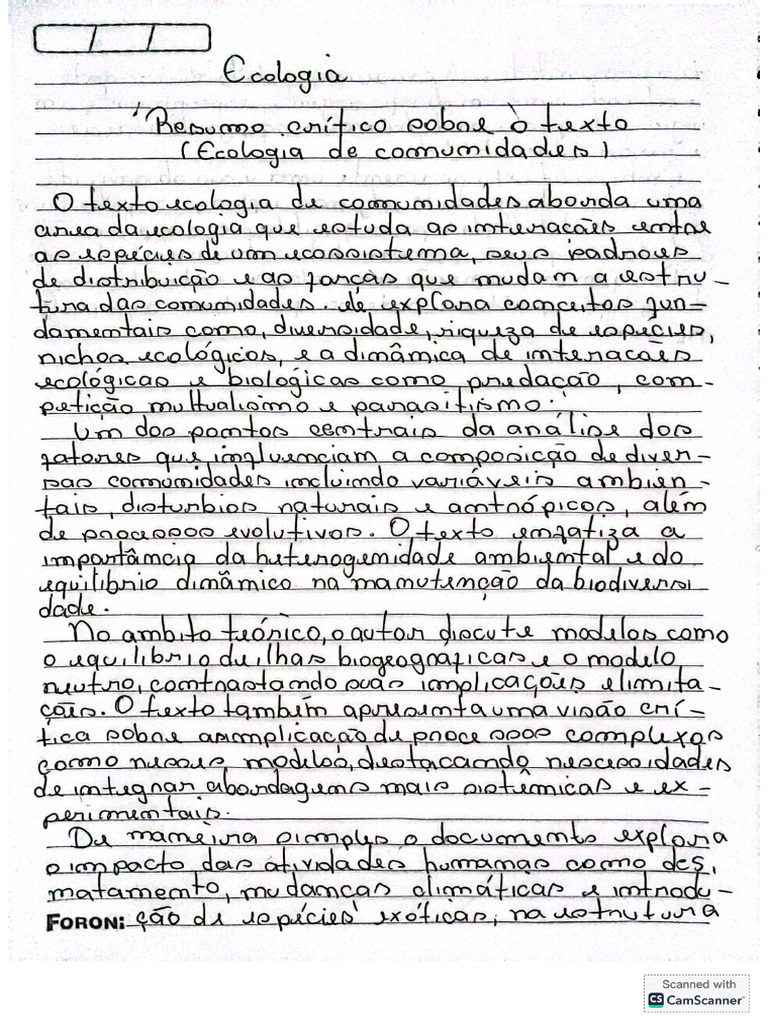 Ecologia
"Resumo crítico sobre o texto
(Ecologia de comunidades)
O texto ecologia de comunidades aborda uma
area da ecologia que estuda as interacães entre
as espécies de um ecossistema, seus padroes
de distribuição e as forcas que mudam a estru-
tura das comunidades. ele explora conceitos fun-
damentais como, diversidade, riqueza de espécies,
nichos ecológicos, e a dinâmica de interacães
ecológicas e biológicas como predação, com-
petição multualismo e parasitismo.
Um dos pontos centrais da análise dos
fatores que influenciam a composição de diver-
sas comunidades incluindo variáveis ambien-
tais, distúrbios naturais e antrópicos, além
de processos evolutivos. O texto enfatiza a
importância da heterogenidade ambiental e do
equilibrio dinâmico na manutenção da biodiversi
dade.
No ambito teórico, o autor discute modelos como
o equilíbrio de ilhas biogeográficas e o modelo
neutro, contrastando suas implicações e limita-
ções. O texto também apresenta uma visão crí-
tica sobre a simplicação de processos complexos
como nesses, modelos, destacando nescessidades
de integrar abordagens mais sistêmicas e ex-
perimentais.
De maneira simples o documento explora
o impacto das atividades humanas como des,
matamento, mudancas climáticas e introdu-
FORON: ção de espécies exóticas, na estrutura
Scanned with
CS CamScanner